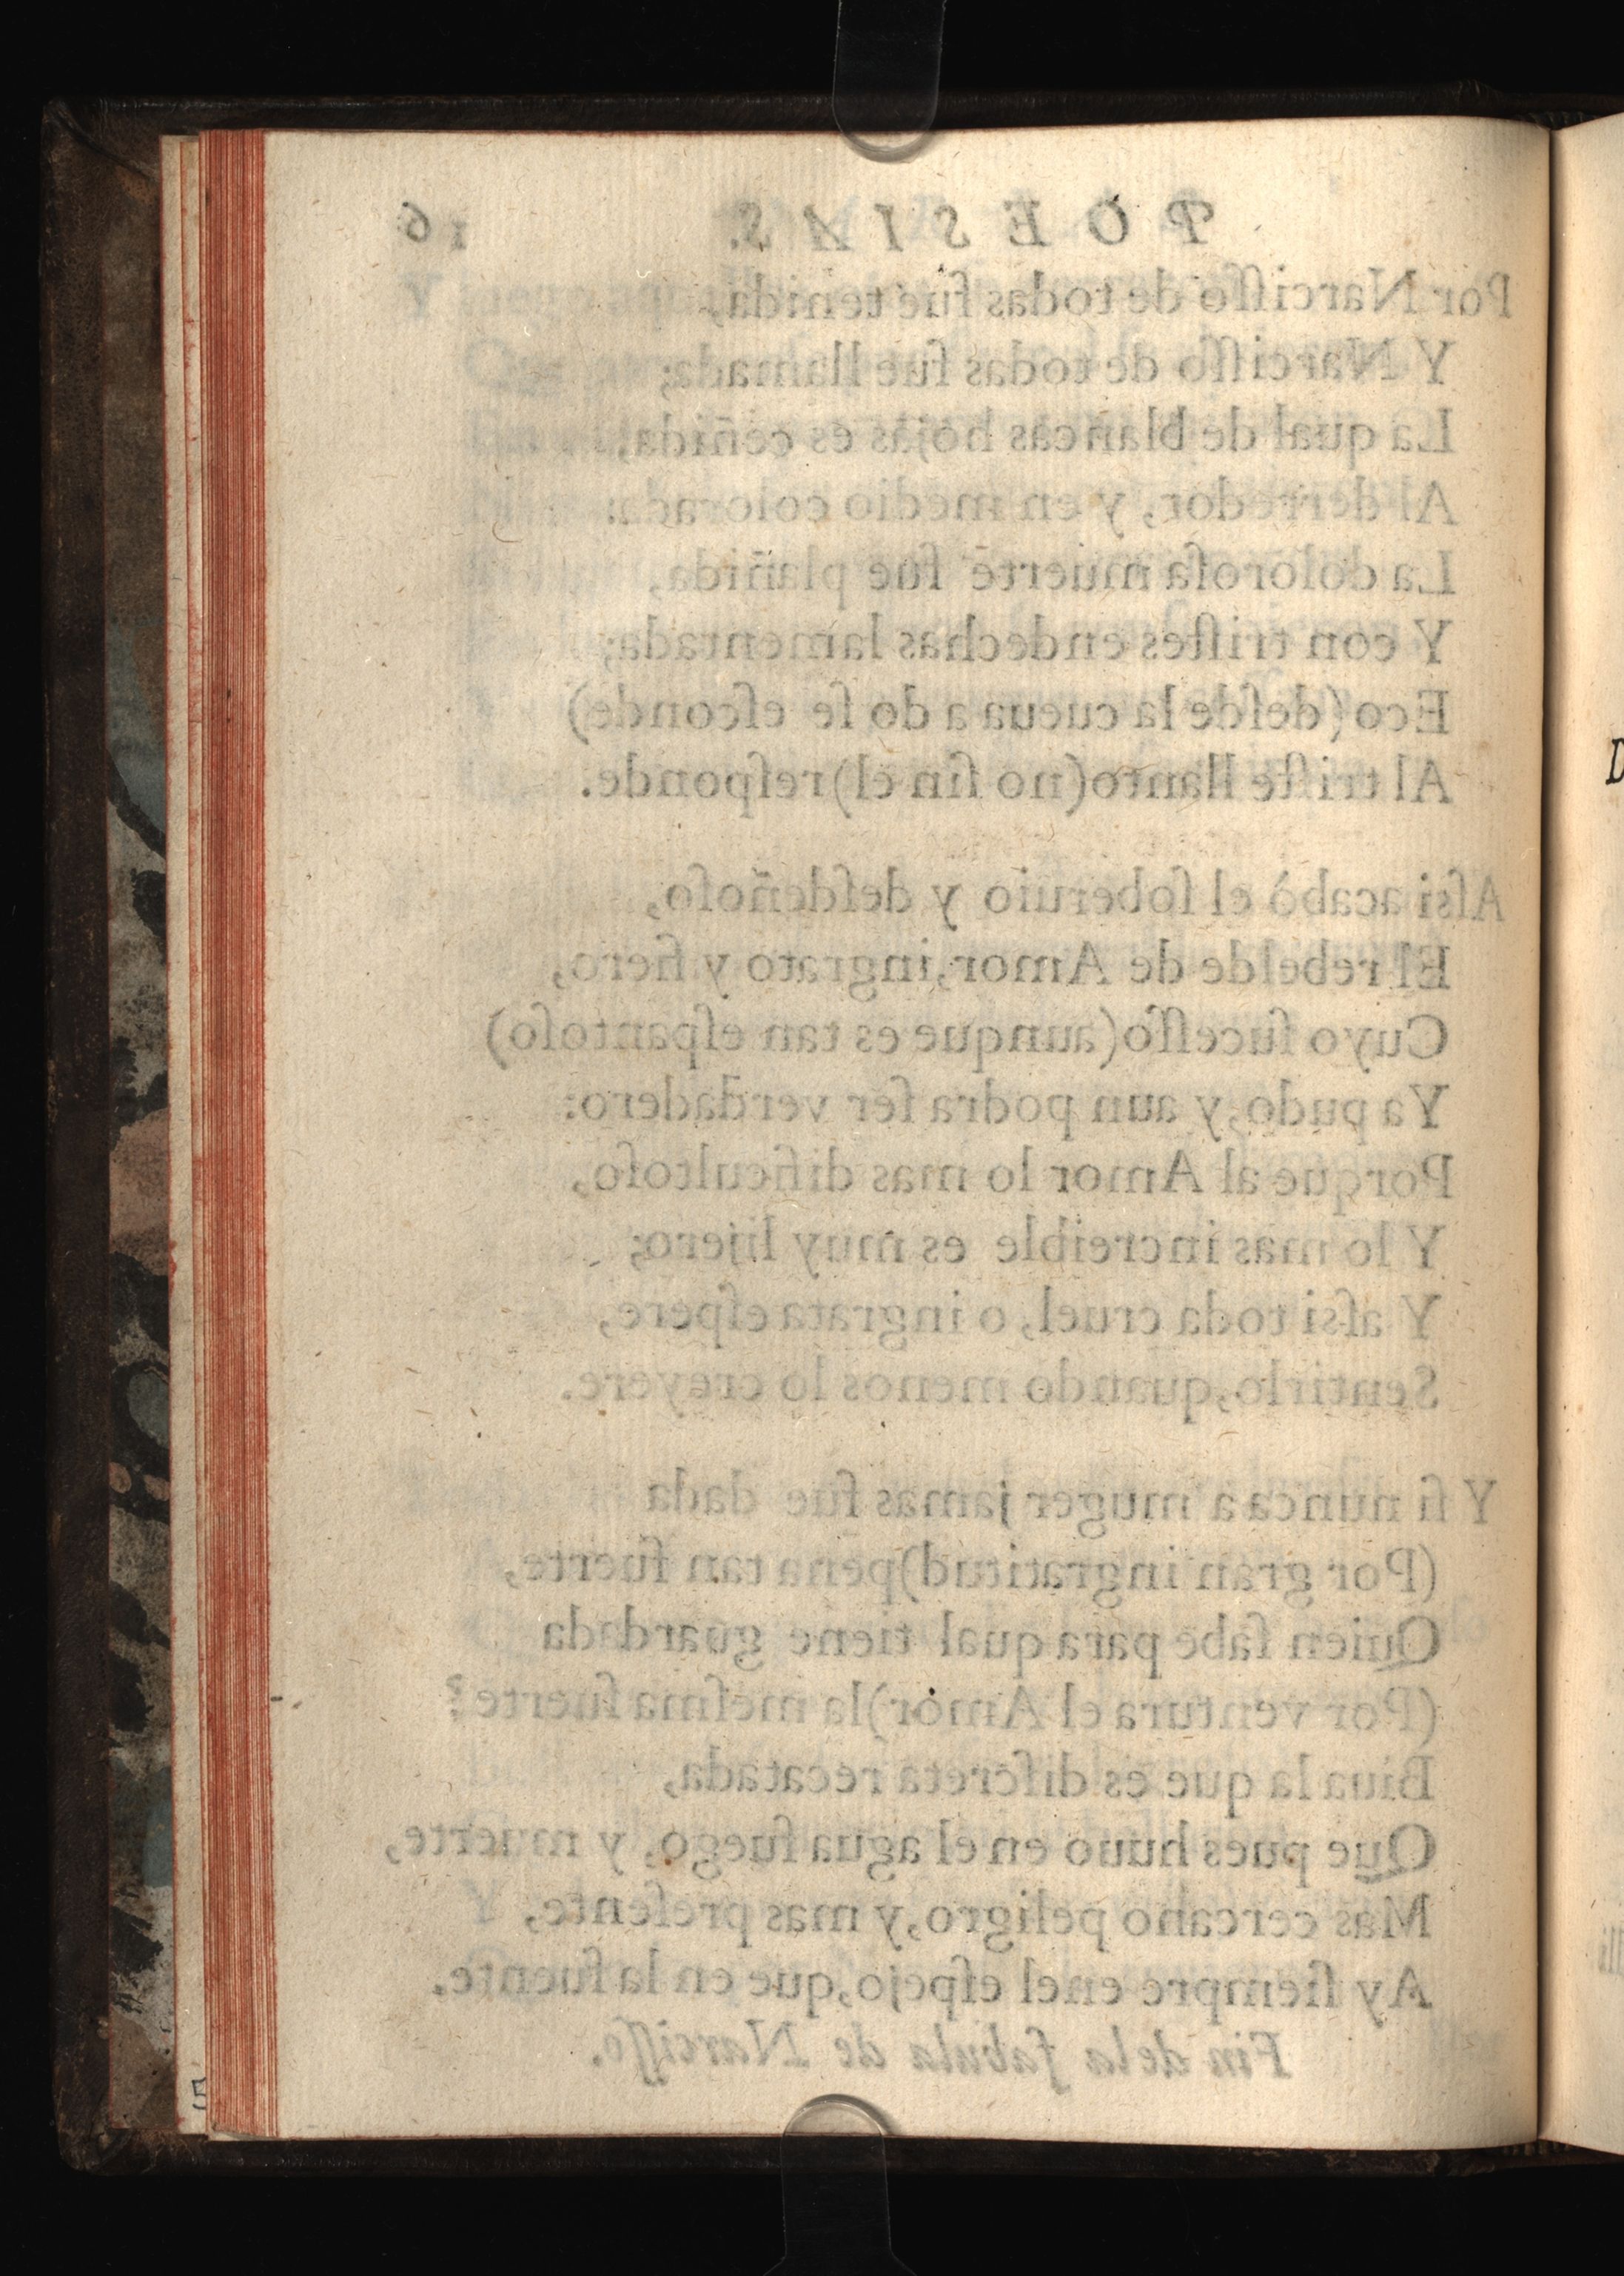 POESIAS. 16
Por Narciſſo de todas fue tenida,
Y Narciſſo de todas fue llamada;
La qual de blancas hojas es ceñida,
Al derredor, y en medio colorada:
La doloroſa muerte fue plañida,
Y con triſtes endechas lamentada;
Eco (deſde la cueua a do ſe eſconde)
Al triſte llanto (no ſin el) reſponde.
Aſsi acabò el ſoberuio y deſdeñoſo,
El rebelde de Amor, ingrato y fiero,
Cuyo ſuceſſo (aunque es tan eſpantoſo)
Ya pudo, y aun podra ſer verdadero:
Porque al Amor lo mas dificultoſo,
Y lo mas increible es muy lijero;
Y aſsi toda cruel, o ingrata eſpere,
Sentirlo, quando menos lo creyere.
Y ſi nunca a muger jamas fue dada
(Por gran ingratitud) pena tan fuerte,
Quien ſabe para qual tiene guardada
(Por ventura el Amor) la meſma ſuerte?
Biua la que es diſcreta recatada,
Que pues huuo en el agua fuego, y muerte,
Mas cercano peligro, y mas preſente,
Ay ſiempre en el eſpejo, que en la fuente.
Fin de la fabula de Narciſſo.
D